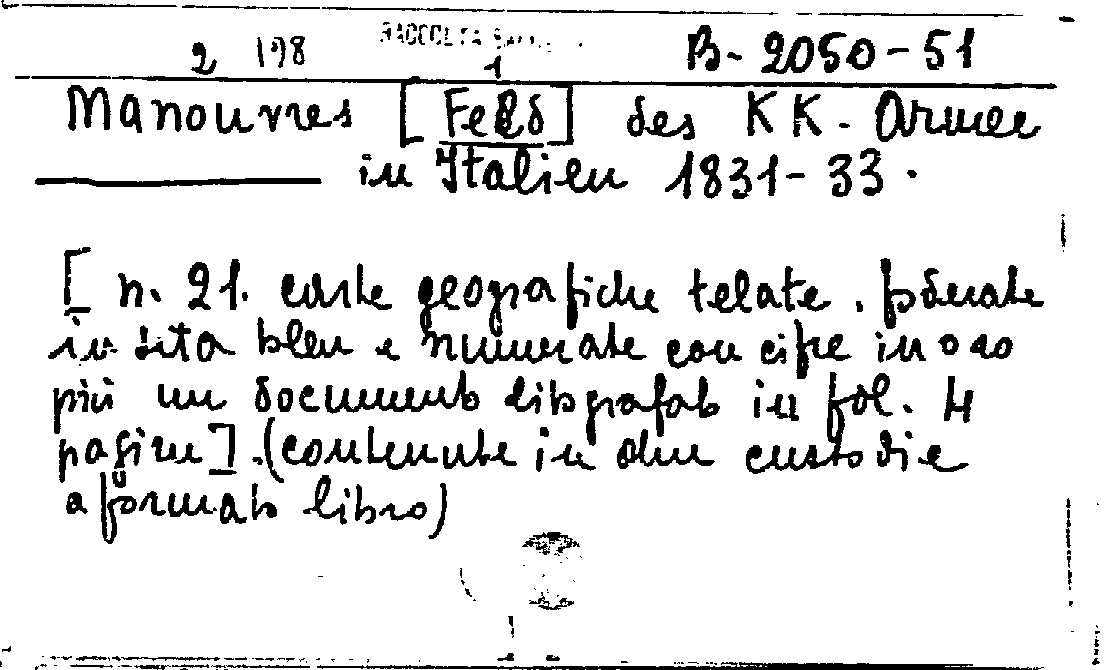 RACCOLTA
2 198 1 B- 2050-51
Manouvres [Feld] des KK- Armee
in Italien 1831-33.
[ n. 21. carte geografiche telate, foderate
in seta bleu e numerate con cifre in oro
più un documento litografato in fol. 4
pagine]. (contenute in due custodie
a formato libro)